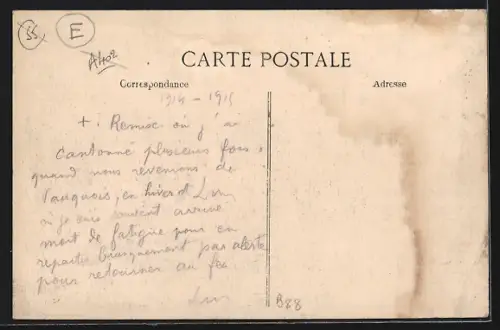 55
E
A402
CARTE POSTALE
Correspondance
Adresse
1914 - 1915
+ : Remise où j'ai
cantonné plusieurs fois,
quand nous revenions de
Vauquois, en hiver et
où je suis souvent arrivé
mort de fatigue pour en
repartir brusquement pas alerte
pour retourner au feu
B88